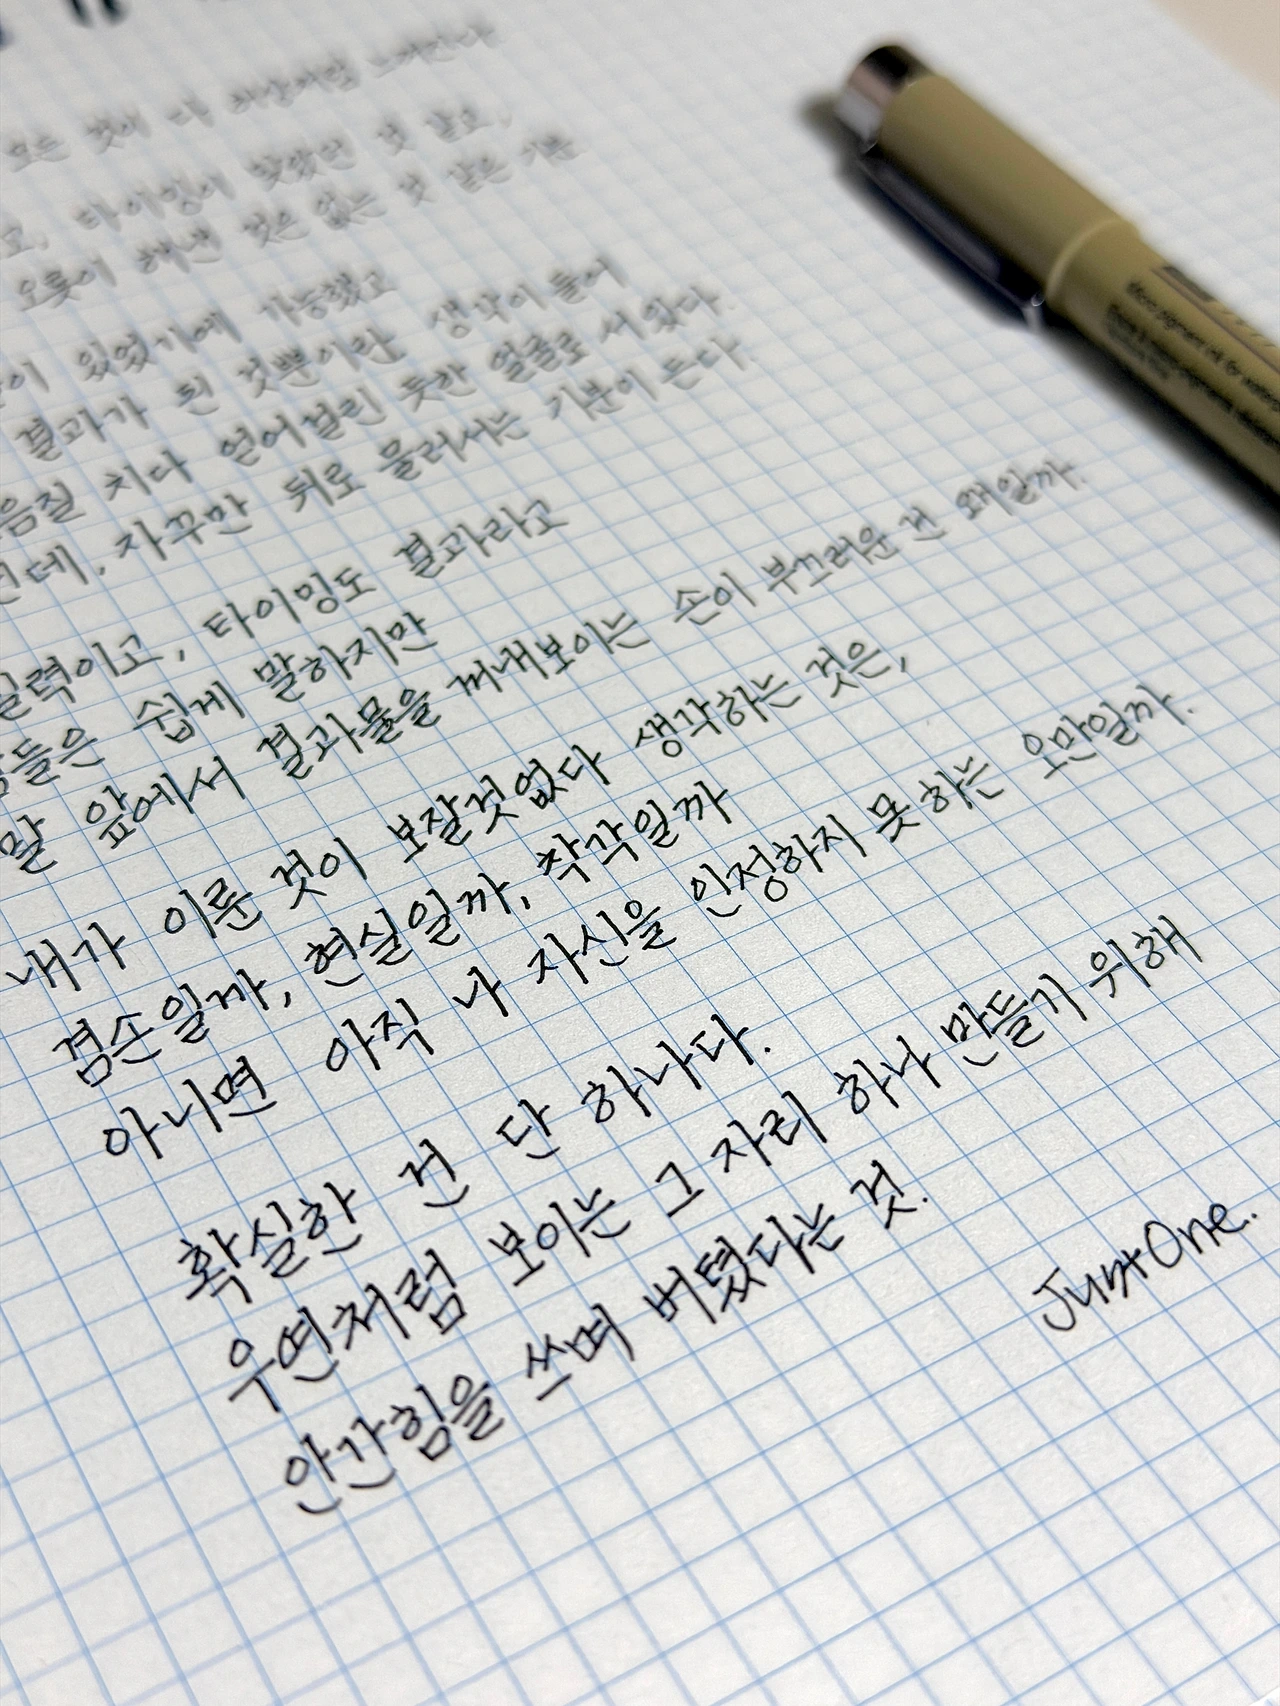 모든 것이 다 허상처럼 느껴진다
타이밍이 맞았던 것 같고,
오롯이 해낸 것은 없는 것 같은 기분
있었기에 가능했고
결과가 된 것뿐이란 생각이 들어
치다 얻어걸린 듯한 얼굴로 서 있다.
자꾸만 뒤로 물러서는 기분이 든다.
실력이고, 타이밍도 결과라고
쉽게 말하지만
말 앞에서 결과물을 꺼내보이는 손이 부끄러운 건 왜일까.
내가 이룬 것이 보잘것없다 생각하는 것은,
겸손일까, 현실일까, 착각일까
아니면 아직 나 자신을 인정하지 못하는 오만일까.
확실한 건 단 하나다.
우연처럼 보이는 그 자리 하나 만들기 위해
안간힘을 쓰며 버텼다는 것.
JustOne.